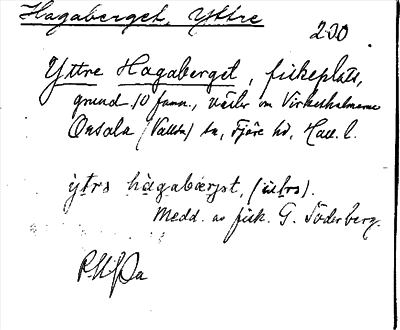 Hagaberget, Yttre
200
Yttre Hagaberget, fiskeplats,
grund 10 famn., väster om Virkesholmarne
Onsala (Vallda) sn, Fjäre hd, Hall. l.
Medd. av fisk. G. Söderberg.